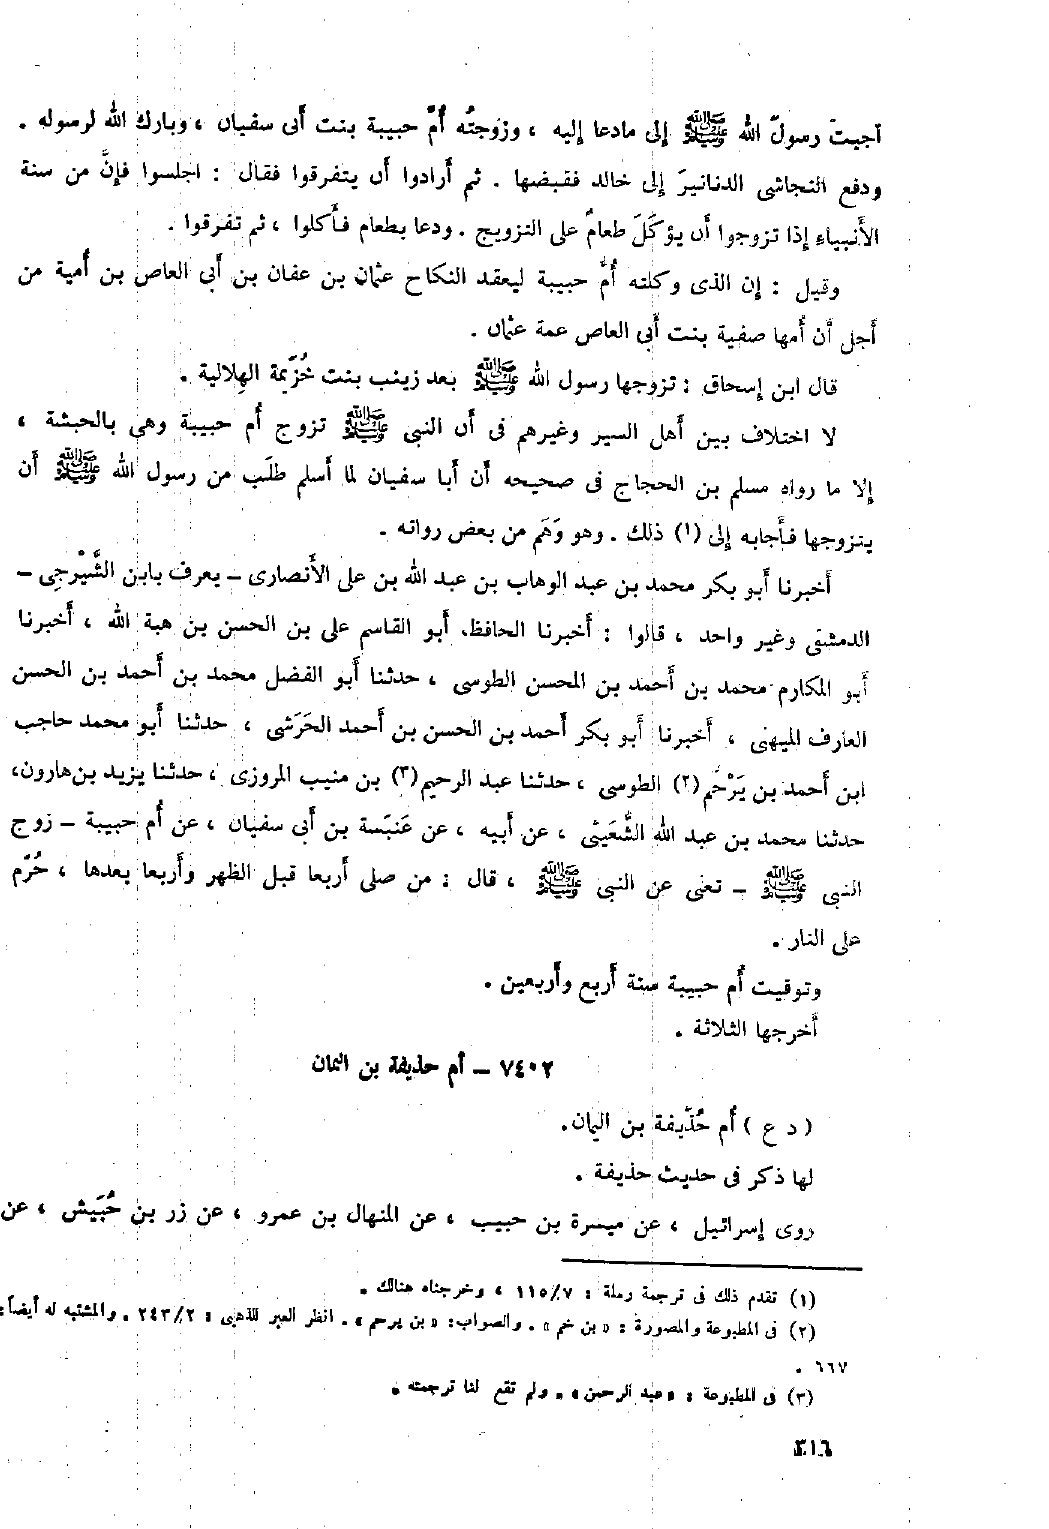 أجبت رسولَ الله ﷺ إلى مادعا إليه ، وزوجتُه أُمّ حبيبة بنت أبى سفيان ، وبارك الله لرسوله .
ودفع النجاشى الدنانيرَ إلى خالد فقبضها . ثم أرادوا أن يتفرقوا فقال : اجلسوا فإِنَّ من سنة
الأنبياءِ إذا تزوجوا أن يؤكَلَ طعامٌ على التزويج . ودعا بطعام فأكلوا ، ثم تفرقوا .
وقيل : إن الذى وكلته أُمّ حبيبة ليعقد النكاح عثمان بن عفان بن أبى العاص بن أُمية من
أجل أن أُمها صفية بنت أبى العاص عمة عثمان .
قال ابن إسحاق : تزوجها رسول الله ﷺ بعد زينب بنت خُزَيمة الهِلالية .
لا اختلاف بين أهل السير وغيرهم فى أن النبى ﷺ تزوج أُم حبيبة وهى بالحبشة ،
إلا ما رواه مسلم بن الحجاج فى صحيحه أن أبا سفيان لما أسلم طلَب من رسول الله ﷺ أن
يتزوجها فأجابه إلى (١) ذلك . وهو وَهَم من بعض رواته .
أخبرنا أبو بكر محمد بن عبد الوهاب بن عبد الله بن على الأنصارى – يعرف بابن الشَّيْرجِى –
الدمشقى وغير واحد ، قالوا : أخبرنا الحافظ أبو القاسم على بن الحسن بن هبة الله ، أخبرنا
أبو المكارم محمد بن أحمد بن المحسن الطوسى ، حدثنا أبو الفضل محمد بن أحمد بن الحسن
العارف الميهنى ، أخبرنا أبو بكر أحمد بن الحسن بن أحمد الحَرَشى ، حدثنا أبو محمد حاجب
ابن أحمد بن يَرْحَم (٢) الطوسى ، حدثنا عبد الرحيم (٣) بن منيب المروزى ، حدثنا يزيد بن هارون،
حدثنا محمد بن عبد الله الشُّعَيثى ، عن أبيه ، عن عَنبَسة بن أبى سفيان ، عن أُم حبيبة – زوج
النبى ﷺ – تعنى عن النبى ﷺ ، قال : من صلى أربعا قبل الظهر وأربعا بعدها ، حُرّم
على النار .
وتوقيت أُم حبيبة سنة أربع وأربعين .
أخرجها الثلاثة .
٧٤٠٢ – أم حذيفة بن اليمان
( د ع ) أُم حُذَيفة بن اليمان.
لها ذكر فى حديث حذيفة .
روى إسرائيل ، عن ميسرة بن حبيب ، عن المنهال بن عمرو ، عن زر بن حُبَيش ، عن
(١) تقدم ذلك فى ترجمة رملة : ٧/١١٥ ، وخرجناه هنالك .
(٢) فى المطبوعة والمصورة : « بن خم » . والصواب: « بن يرحم » . انظر العبر للذهبى : ٢/٢٤٣ . والمشتبه له أيضاً:
٦٦٧ .
(٣) فى المطبوعة : « عبد الرحمن » . ولم تقع لنا ترجمته .
٣١٦